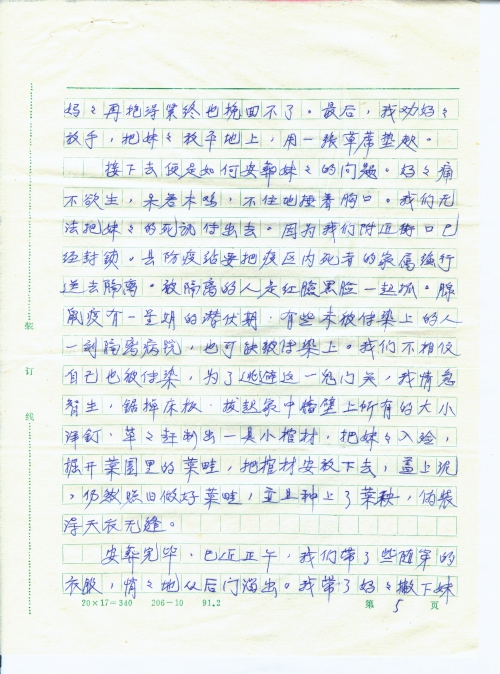 妈々再抱得紧终也挽回不了。最后，我劝妈々
放手，把妹々放平地上，用一张草席垫
接下去便是如何安葬妹々的问题。妈々痛
不欲生，呆若木鸡，不住地捶着胸口。我们无
法把妹々的死讯传出去。因为我们附近街口已
经封锁。县防疫站要把疫区内死者的家属强行
送去隔离。被隔离的人是红脸黑脸一起抓。腺
鼠疫有一星期的潜伏期，有些未被传染上的人
一到隔离病院，也可能被传染上。我们不相信
自己也被传染，为了逃避这一鬼门关，我情急
智生，锯掉床板，拔起家中墙壁上所有的大小
洋钉，草々赶制出一具小棺材，把妹々入殓，
掘开菜园里的菜畦，把棺材安放下去，盖上泥
，仍然照旧做好菜畦，並且种上了菜秧，伪装
得天衣无缝。
安葬完毕，已近正午，我们带了些随穿的
衣服，悄々地从后门溜出。我带了妈々撇下妹
装
订
线
20×17=340 206-10 91.2 第 5 页